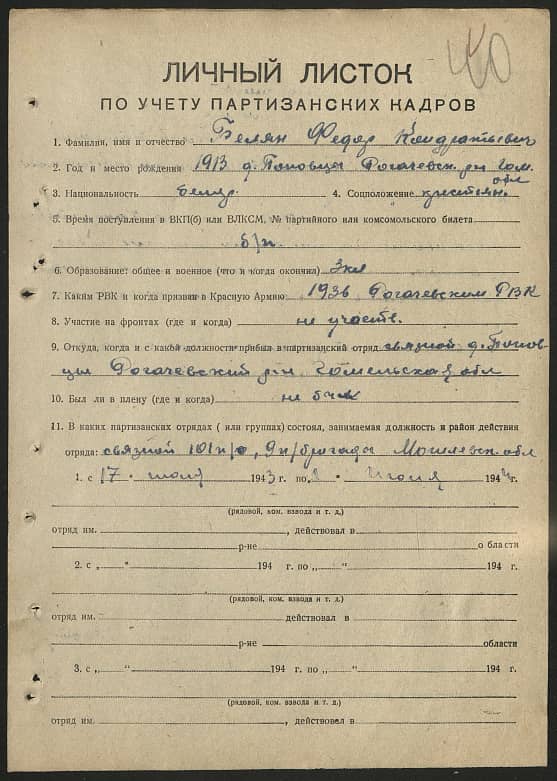 40
ЛИЧНЫЙ ЛИСТОК
ПО УЧЕТУ ПАРТИЗАНСКИХ КАДРОВ
1. Фамилия, имя и отчество Белян Федор Кондратьевич
2. Год и место рождения 1913 д. Поповцы Рогачевск. р-н Гом. обл
3. Национальность белор. 4. Соцположение крестьян.
5. Время поступления в ВКП(б) или ВЛКСМ, № партийного или комсомольского билета
б/п
6. Образование: общее и военное (что и когда окончил) 3 кл
7. Каким РВК и когда призван в Красную Армию 1936 Рогачевским РВК
8. Участие на фронтах (где и когда) не участв.
9. Откуда, когда и с какой должности прибыл в партизанский отряд связной д. Попов-
цы Рогачевский р-н Гомельская обл
10. Был ли в плену (где и когда) не был
11. В каких партизанских отрядах ( или группах) состоял, занимаемая должность и район действия
отряда: связной 101 п/о, 9 п/бригады Могилевск. обл
1. с 17 " июля 1943 г. по " июля 1944 г.
(рядовой, ком. взвода и т. д.)
отряд им. , действовал в
р-не о бласти
2. с „ " 194 г. по „ " 194 г.
(рядовой, ком. взвода и т. д.)
отряд им. действовал в
р-не области
3. с „ " 194 г. по „ " 194 г.
(рядовой, ком. взвода и т. д.)
отряд им. , действовал в